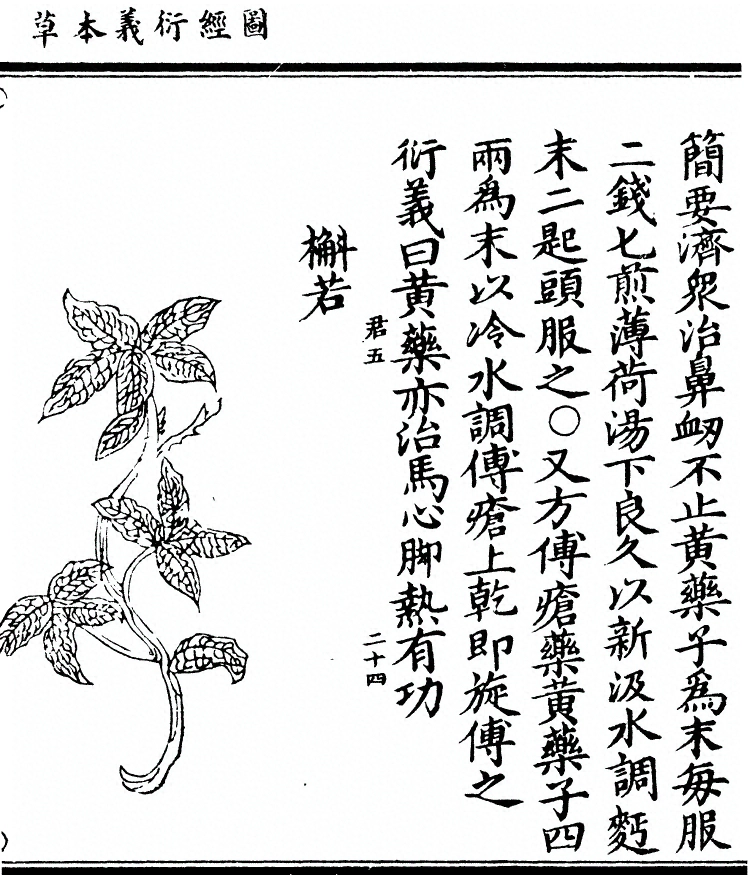 圖經衍義本草
簡要濟衆治鼻衂不止黄藥子爲末每服
二錢匕煎薄荷湯下良久以新汲水調麫
末二匙頭服之○又方傅瘡藥黄藥子四
兩爲末以冷水調傅瘡上乾即旋傅之
衍義曰黄藥亦治馬心脚熱有功
君五 二十四
槲若